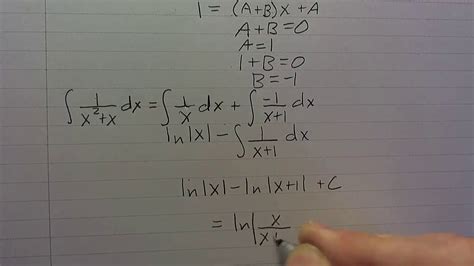 1 = (A+B)x + A
A + B = 0
A = 1
1 + B = 0
B = -1
∫ 1/(x²+x) dx = ∫ 1/x dx + ∫ -1/(x+1) dx
ln|x| - ∫ 1/(x+1) dx
ln|x| - ln|x+1| + C
= ln| x/(x+